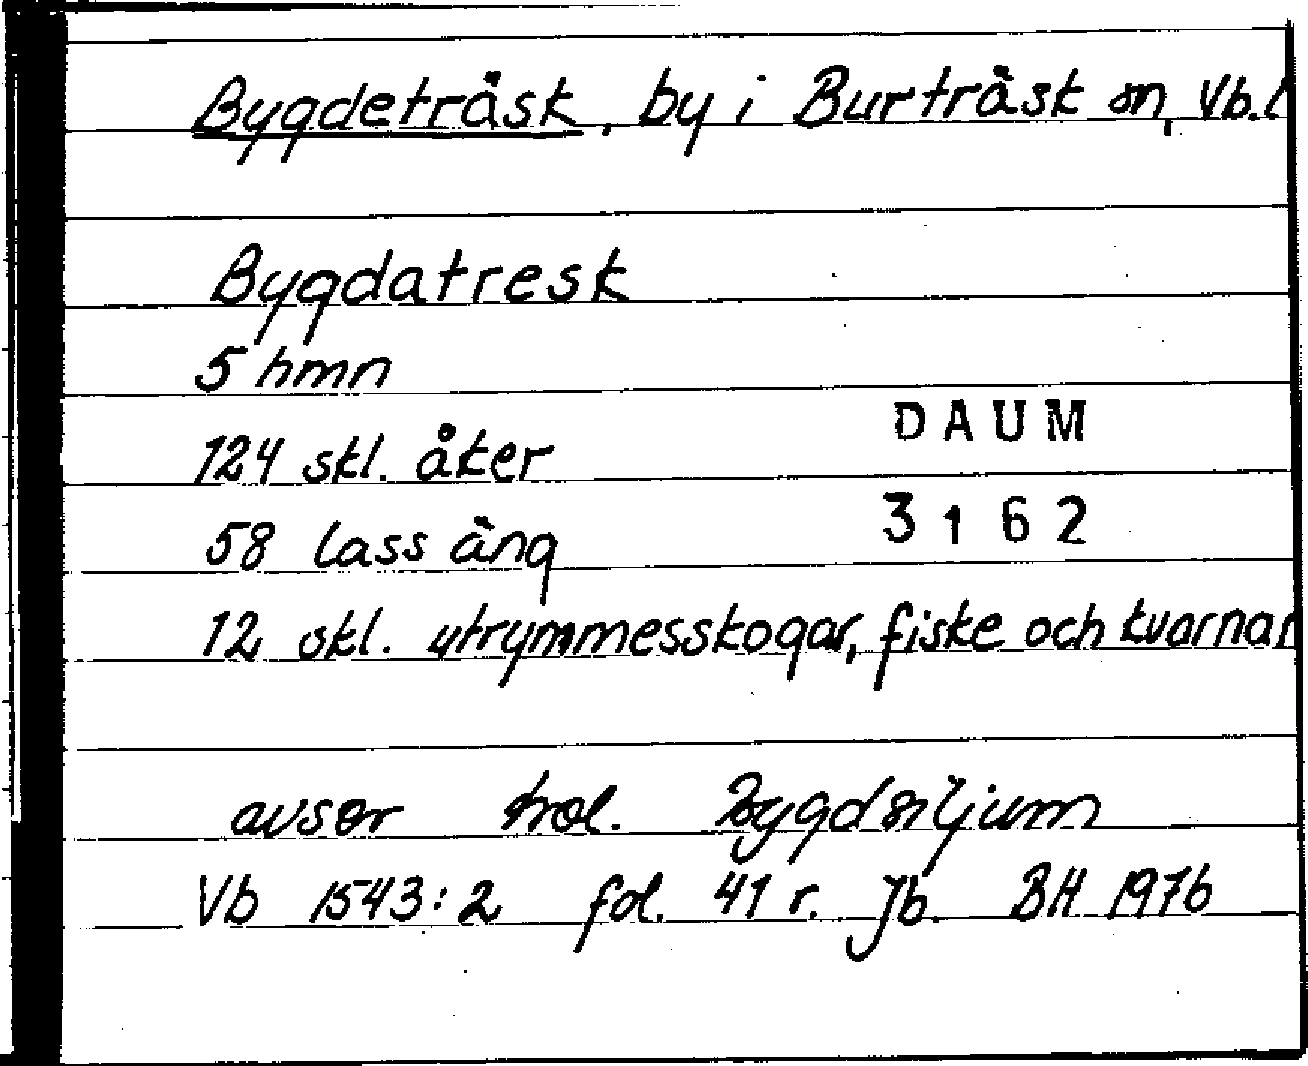 Bygdeträsk, by i Burträsk sn, Vb.l
Bygdatresk
5 hmn
DAUM
124 skl. åker
3162
58 lass äng
12 skl. utrymmesskogar, fiske och kvarnar
avser trol. Bygdsiljum
Vb 1543:2 fol. 41 r. Jb. BH 1976